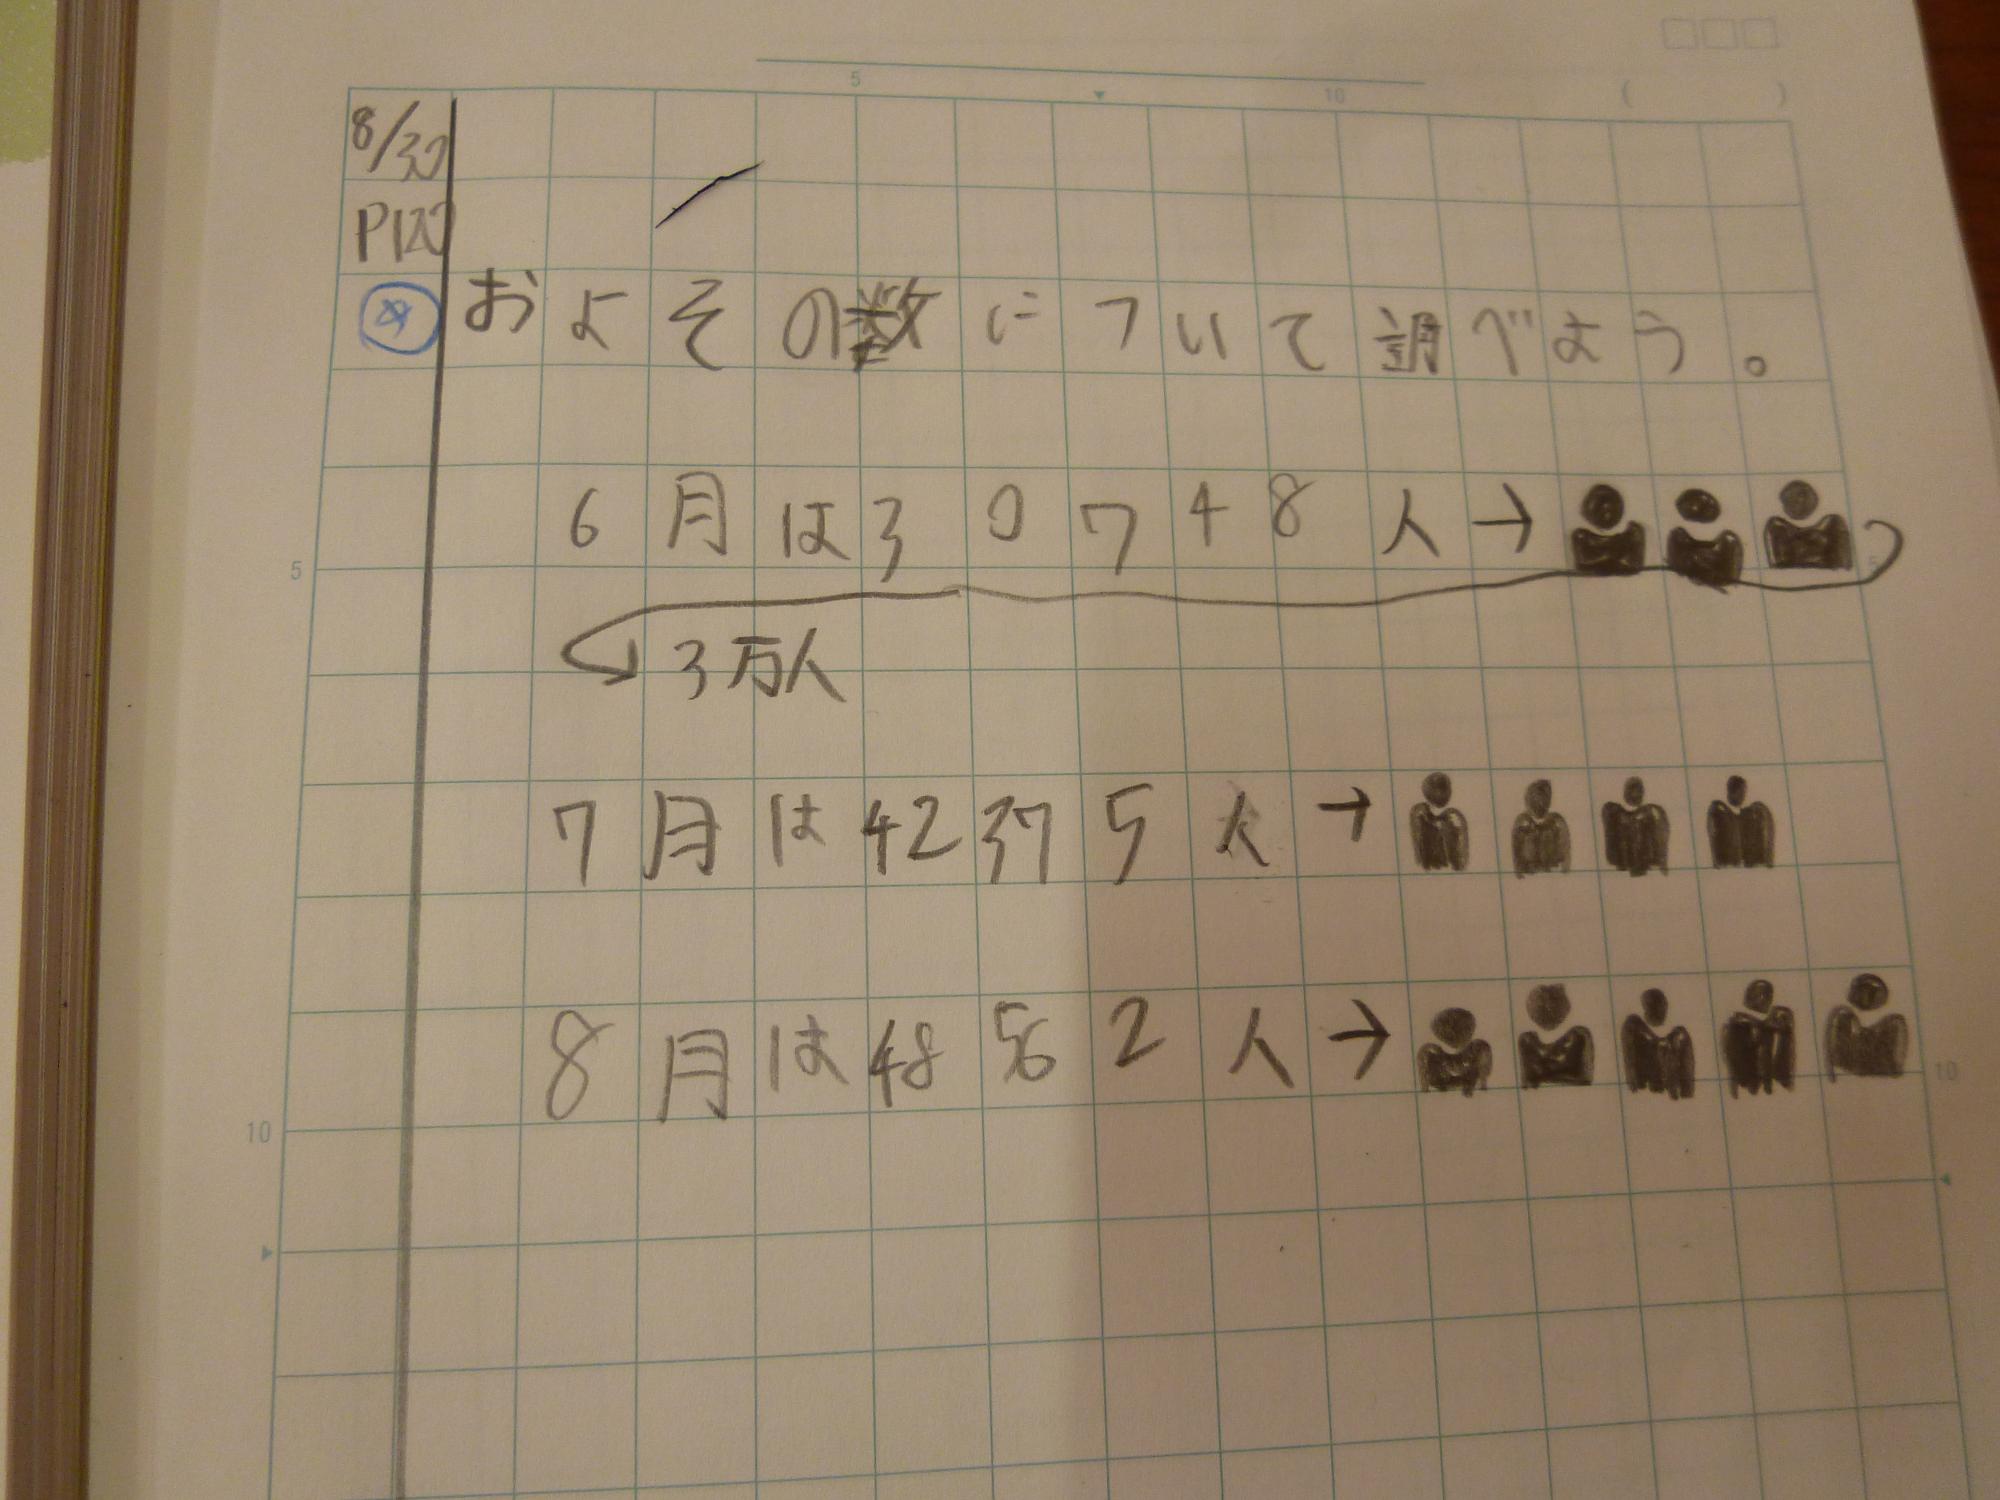 8/30
P122
め およその数について調べよう。
6月は30748人→
3万人
7月は42375人→
8月は48562人→
5
10
5
10
5
10
( )